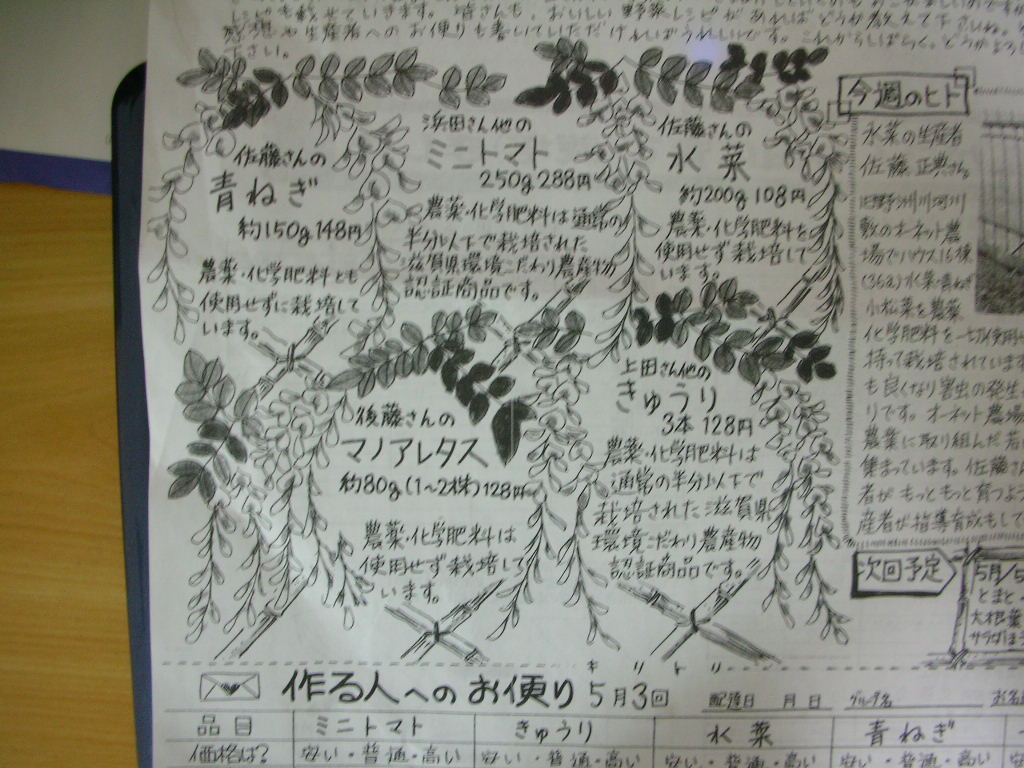 レシピも載せていきます。皆さんも、おいしい野菜レシピがあればどうか教えて下さいね。
感想や生産者へのお便りも書いていただければうれしいです。これからしばらく、どうかよろ
下さい。
佐藤さんの
青ねぎ
約150g 148円
農薬・化学肥料とも
使用せずに栽培して
います。
浜田さん他の
ミニトマト
250g 288円
農薬・化学肥料は通常の
半分以下で栽培された
滋賀県環境こだわり農産物
認証商品です。
佐藤さんの
水菜
約200g 108円
農薬・化学肥料を
使用せず栽培して
います。
後藤さんの
マノアレタス
約80g(1~2株)128円
農薬・化学肥料は
使用せず栽培して
います。
上田さん他の
きゅうり
3本 128円
農薬・化学肥料は
通常の半分以下で
栽培された滋賀県
環境こだわり農産物
認証商品です。
今週のヒト
水菜の生産者
佐藤 正典さん。
旧野洲川河川
敷のオーネット農
場でハウス16棟
(36a)水菜・青ねぎ
小松菜を農薬
化学肥料を一切使用せ
持って栽培されています
も良くなり害虫の発生
りです。オーネット農場
農薬に取り組んだ若
集まっています。佐藤さ
者がもっともっと育つよう
産者が指導育成もして
次回予定
5月/5
とまと
大根葉
サラダほう
キリトリ
作る人へのお便り 5月3回
配達日 月 日 グループ名 お名
品目 ミニトマト きゅうり 水菜 青ねぎ
価格は? 安い・普通・高い 安い・普通・高い 安い・普通・高い 安い・普通・高い 安